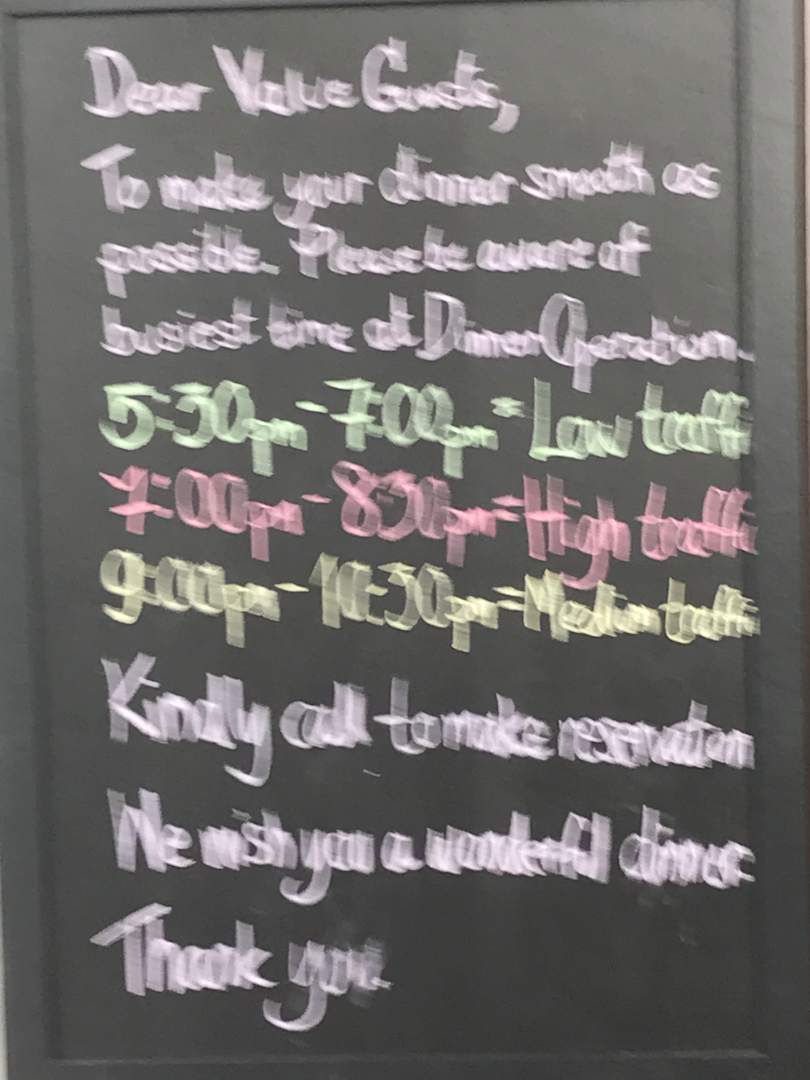 Dear Value Guests,
To make your dinner smooth as
possible. Please be aware of
busiest time at Dinner Operation.
5:30pm - 7:00pm = Low traffi
7:00pm - 8:30pm = High traffi
9:00pm - 10:30pm = Medium traffi
Kindly call to make reservation
We wish you a wonderful dinner
Thank you.